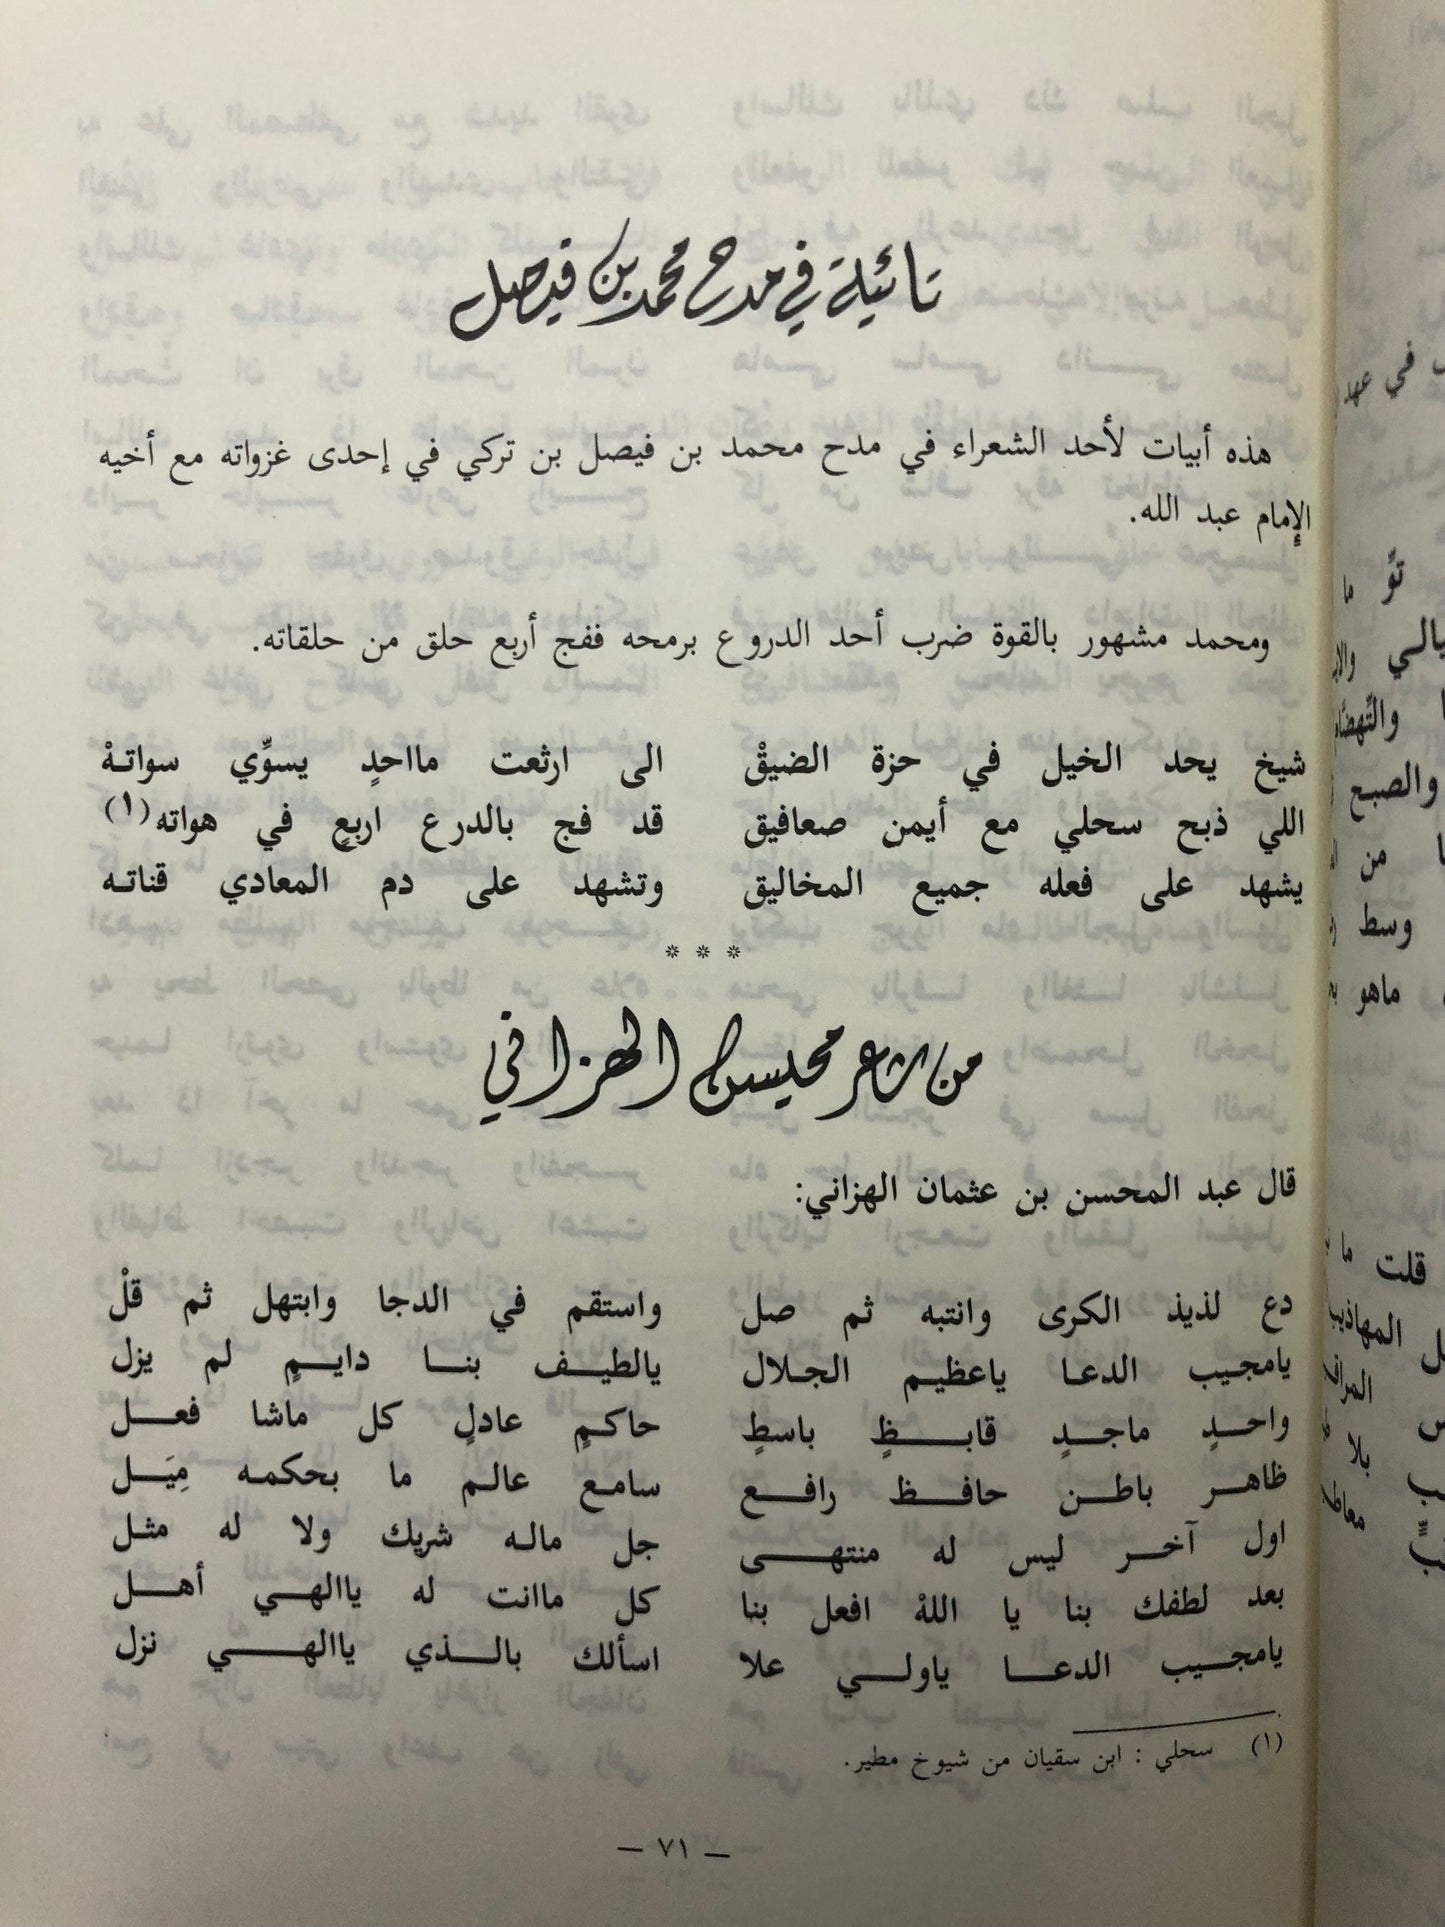 تائية في مدح محمد بن فيصل
هذه أبيات لأحد الشعراء في مدح محمد بن فيصل بن تركي في إحدى غزواته مع أخيه
الإمام عبد الله.
ومحمد مشهور بالقوة ضرب أحد الدروع برمحه ففج أربع حلق من حلقاته.
شيخ يحد الخيل في حزة الضيقْ الى ارثعت مااحدٍ يسوِّي سواتهْ
اللي ذبح سحلي مع أيمن صعافيق قد فج بالدرع اربعٍ في هواته(١)
يشهد على فعله جميع المخاليق وتشهد على دم المعادي قناته
* * *
من شاعر محيسن الهزاني
قال عبد المحسن بن عثمان الهزاني:
دع لذيذ الكرى وانتبه ثم صل واستقم في الدجا وابتهل ثم قلْ
يامجيب الدعا ياعظيم الجلال يالطيف بنا دايمٍ لم يزل
واحدٍ ماجدٍ قابظٍ باسطٍ حاكمٍ عادلٍ كل ماشا فعل
ظاهر باطن حافظ رافع سامع عالم ما بحكمه مِيَل
اول آخر ليس له منتهى جل ماله شريك ولا له مثل
بعد لطفك بنا يا اللهْ افعل بنا كل ماانت له ياالهي أهل
يامجيب الدعا ياولي علا اسألك بالذي ياالهي نزل
(١) سحلي : ابن سقيان من شيوخ مطير.
— ٧١ —